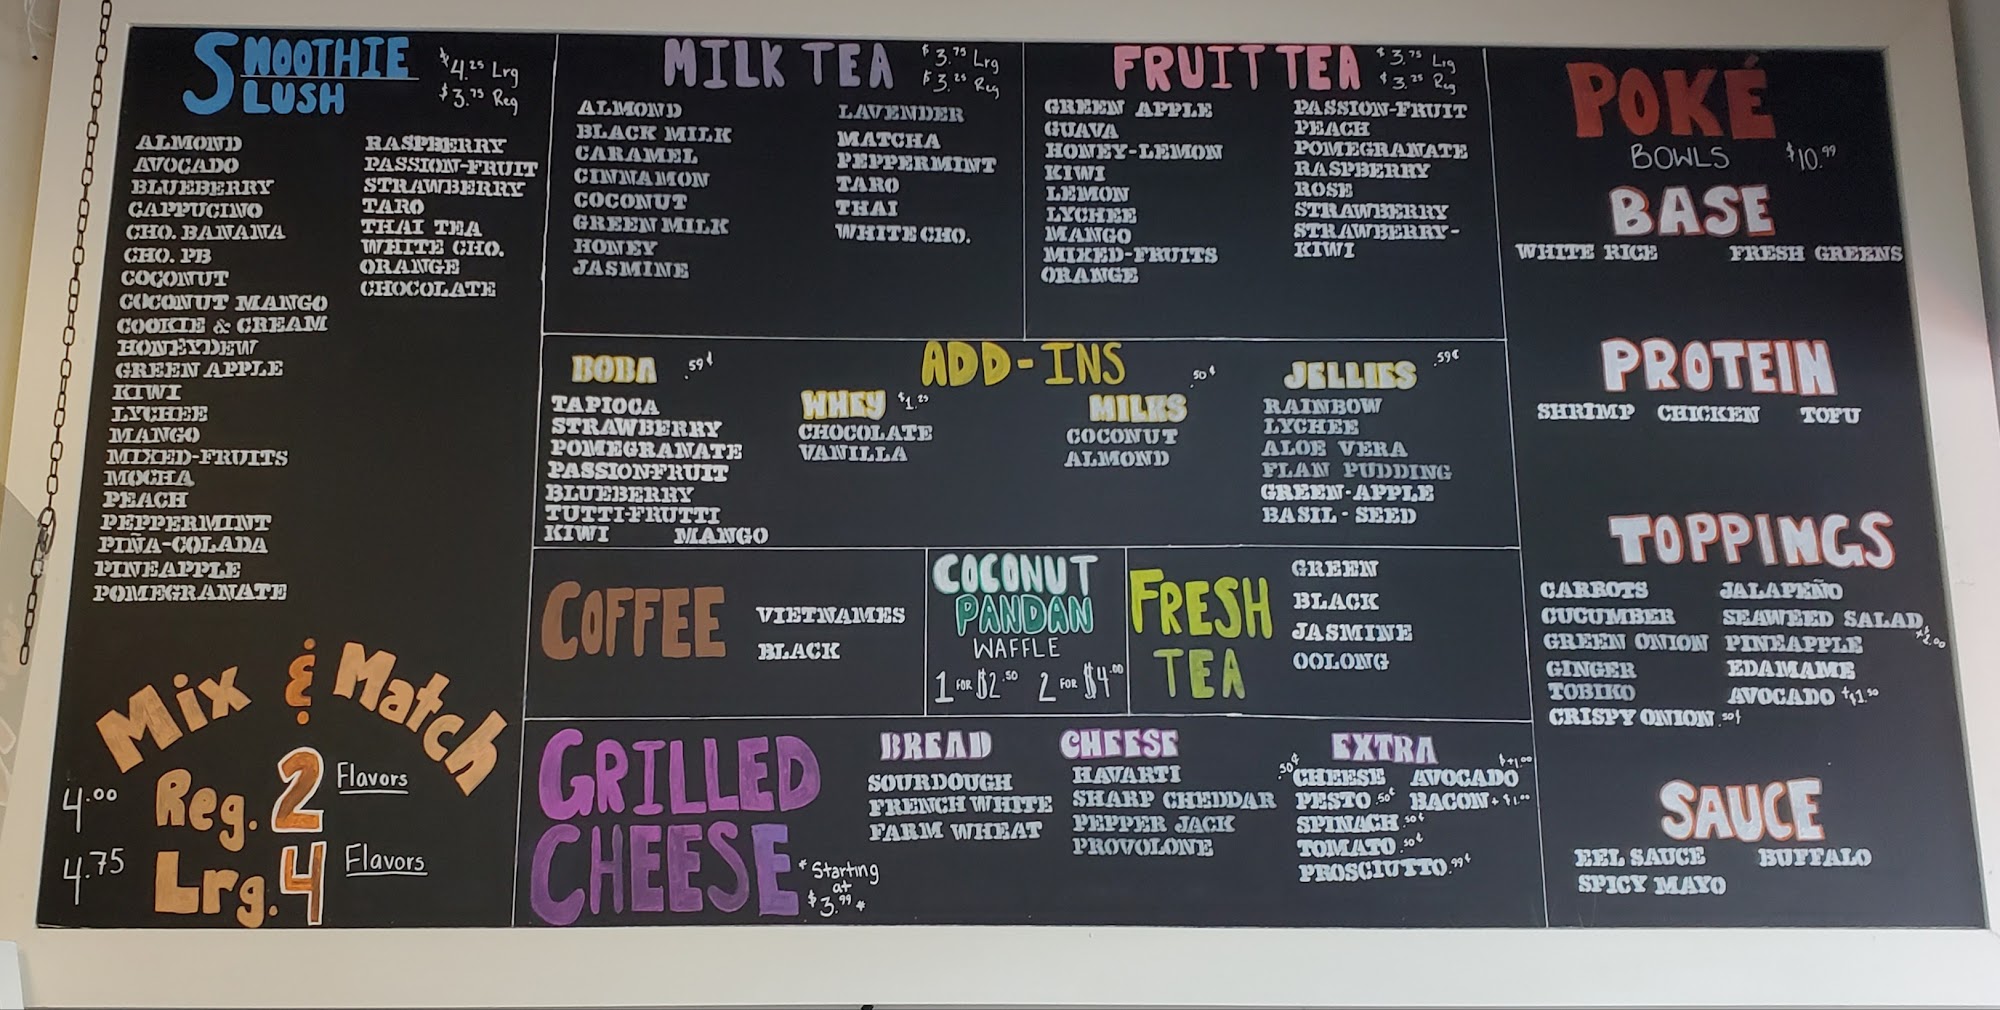 SMOOTHIE
SLUSH
$4.25 Lrg
$3.75 Reg
ALMOND
AVOCADO
BLUEBERRY
CAPPUCINO
CHO. BANANA
CHO. PB
COCONUT
COCONUT MANGO
COOKIE & CREAM
HONEYDEW
GREEN APPLE
KIWI
LYCHEE
MANGO
MIXED-FRUITS
MOCHA
PEACH
PEPPERMINT
PIÑA-COLADA
PINEAPPLE
POMEGRANATE
RASPBERRY
PASSION-FRUIT
STRAWBERRY
TARO
THAI TEA
WHITE CHO.
ORANGE
CHOCOLATE
Mix & Match
4.00 Reg. 2 Flavors
4.75 Lrg. 4 Flavors
MILK TEA
$3.75 Lrg
$3.25 Reg
ALMOND
BLACK MILK
CARAMEL
CINNAMON
COCONUT
GREEN MILK
HONEY
JASMINE
LAVENDER
MATCHA
PEPPERMINT
TARO
THAI
WHITE CHO.
FRUIT TEA
$3.75 Lrg
$3.25 Reg
GREEN APPLE
GUAVA
HONEY-LEMON
KIWI
LEMON
LYCHEE
MANGO
MIXED-FRUITS
ORANGE
PASSION-FRUIT
PEACH
POMEGRANATE
RASPBERRY
ROSE
STRAWBERRY
STRAWBERRY-
KIWI
ADD-INS
BOBA .59¢
TAPIOCA
STRAWBERRY
POMEGRANATE
PASSIONFRUIT
BLUEBERRY
TUTTI-FRUTTI
KIWI MANGO
WHEY $1.25
CHOCOLATE
VANILLA
MILKS .50¢
COCONUT
ALMOND
JELLIES .59¢
RAINBOW
LYCHEE
ALOE VERA
FLAN PUDDING
GREEN-APPLE
BASIL-SEED
COFFEE
VIETNAMES
BLACK
COCONUT
PANDAN
WAFFLE
1 FOR $2.50 2 FOR $4.00
FRESH
TEA
GREEN
BLACK
JASMINE
OOLONG
GRILLED
CHEESE
* Starting
at
$3.99 *
BREAD
SOURDOUGH
FRENCH WHITE
FARM WHEAT
CHEESE
HAVARTI
SHARP CHEDDAR
PEPPER JACK
PROVOLONE
EXTRA
.50¢ CHEESE AVOCADO $+1.00
PESTO .50¢ BACON +$1.00
SPINACH .50¢
TOMATO .50¢
PROSCIUTTO .99¢
POKÉ
BOWLS $10.99
BASE
WHITE RICE FRESH GREENS
PROTEIN
SHRIMP CHICKEN TOFU
TOPPINGS
CARROTS
CUCUMBER
GREEN ONION
GINGER
TOBIKO
CRISPY ONION .50¢
JALAPEÑO
SEAWEED SALAD
PINEAPPLE
EDAMAME
AVOCADO +$1.50
SAUCE
EEL SAUCE BUFFALO
SPICY MAYO